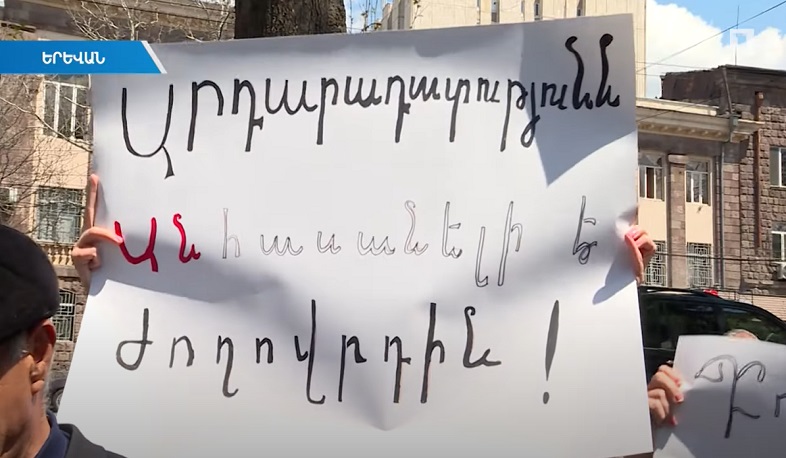 ԵՐԵՎԱՆ
Արդարադատությունն
Անհասանելի է
ժողովրդին !